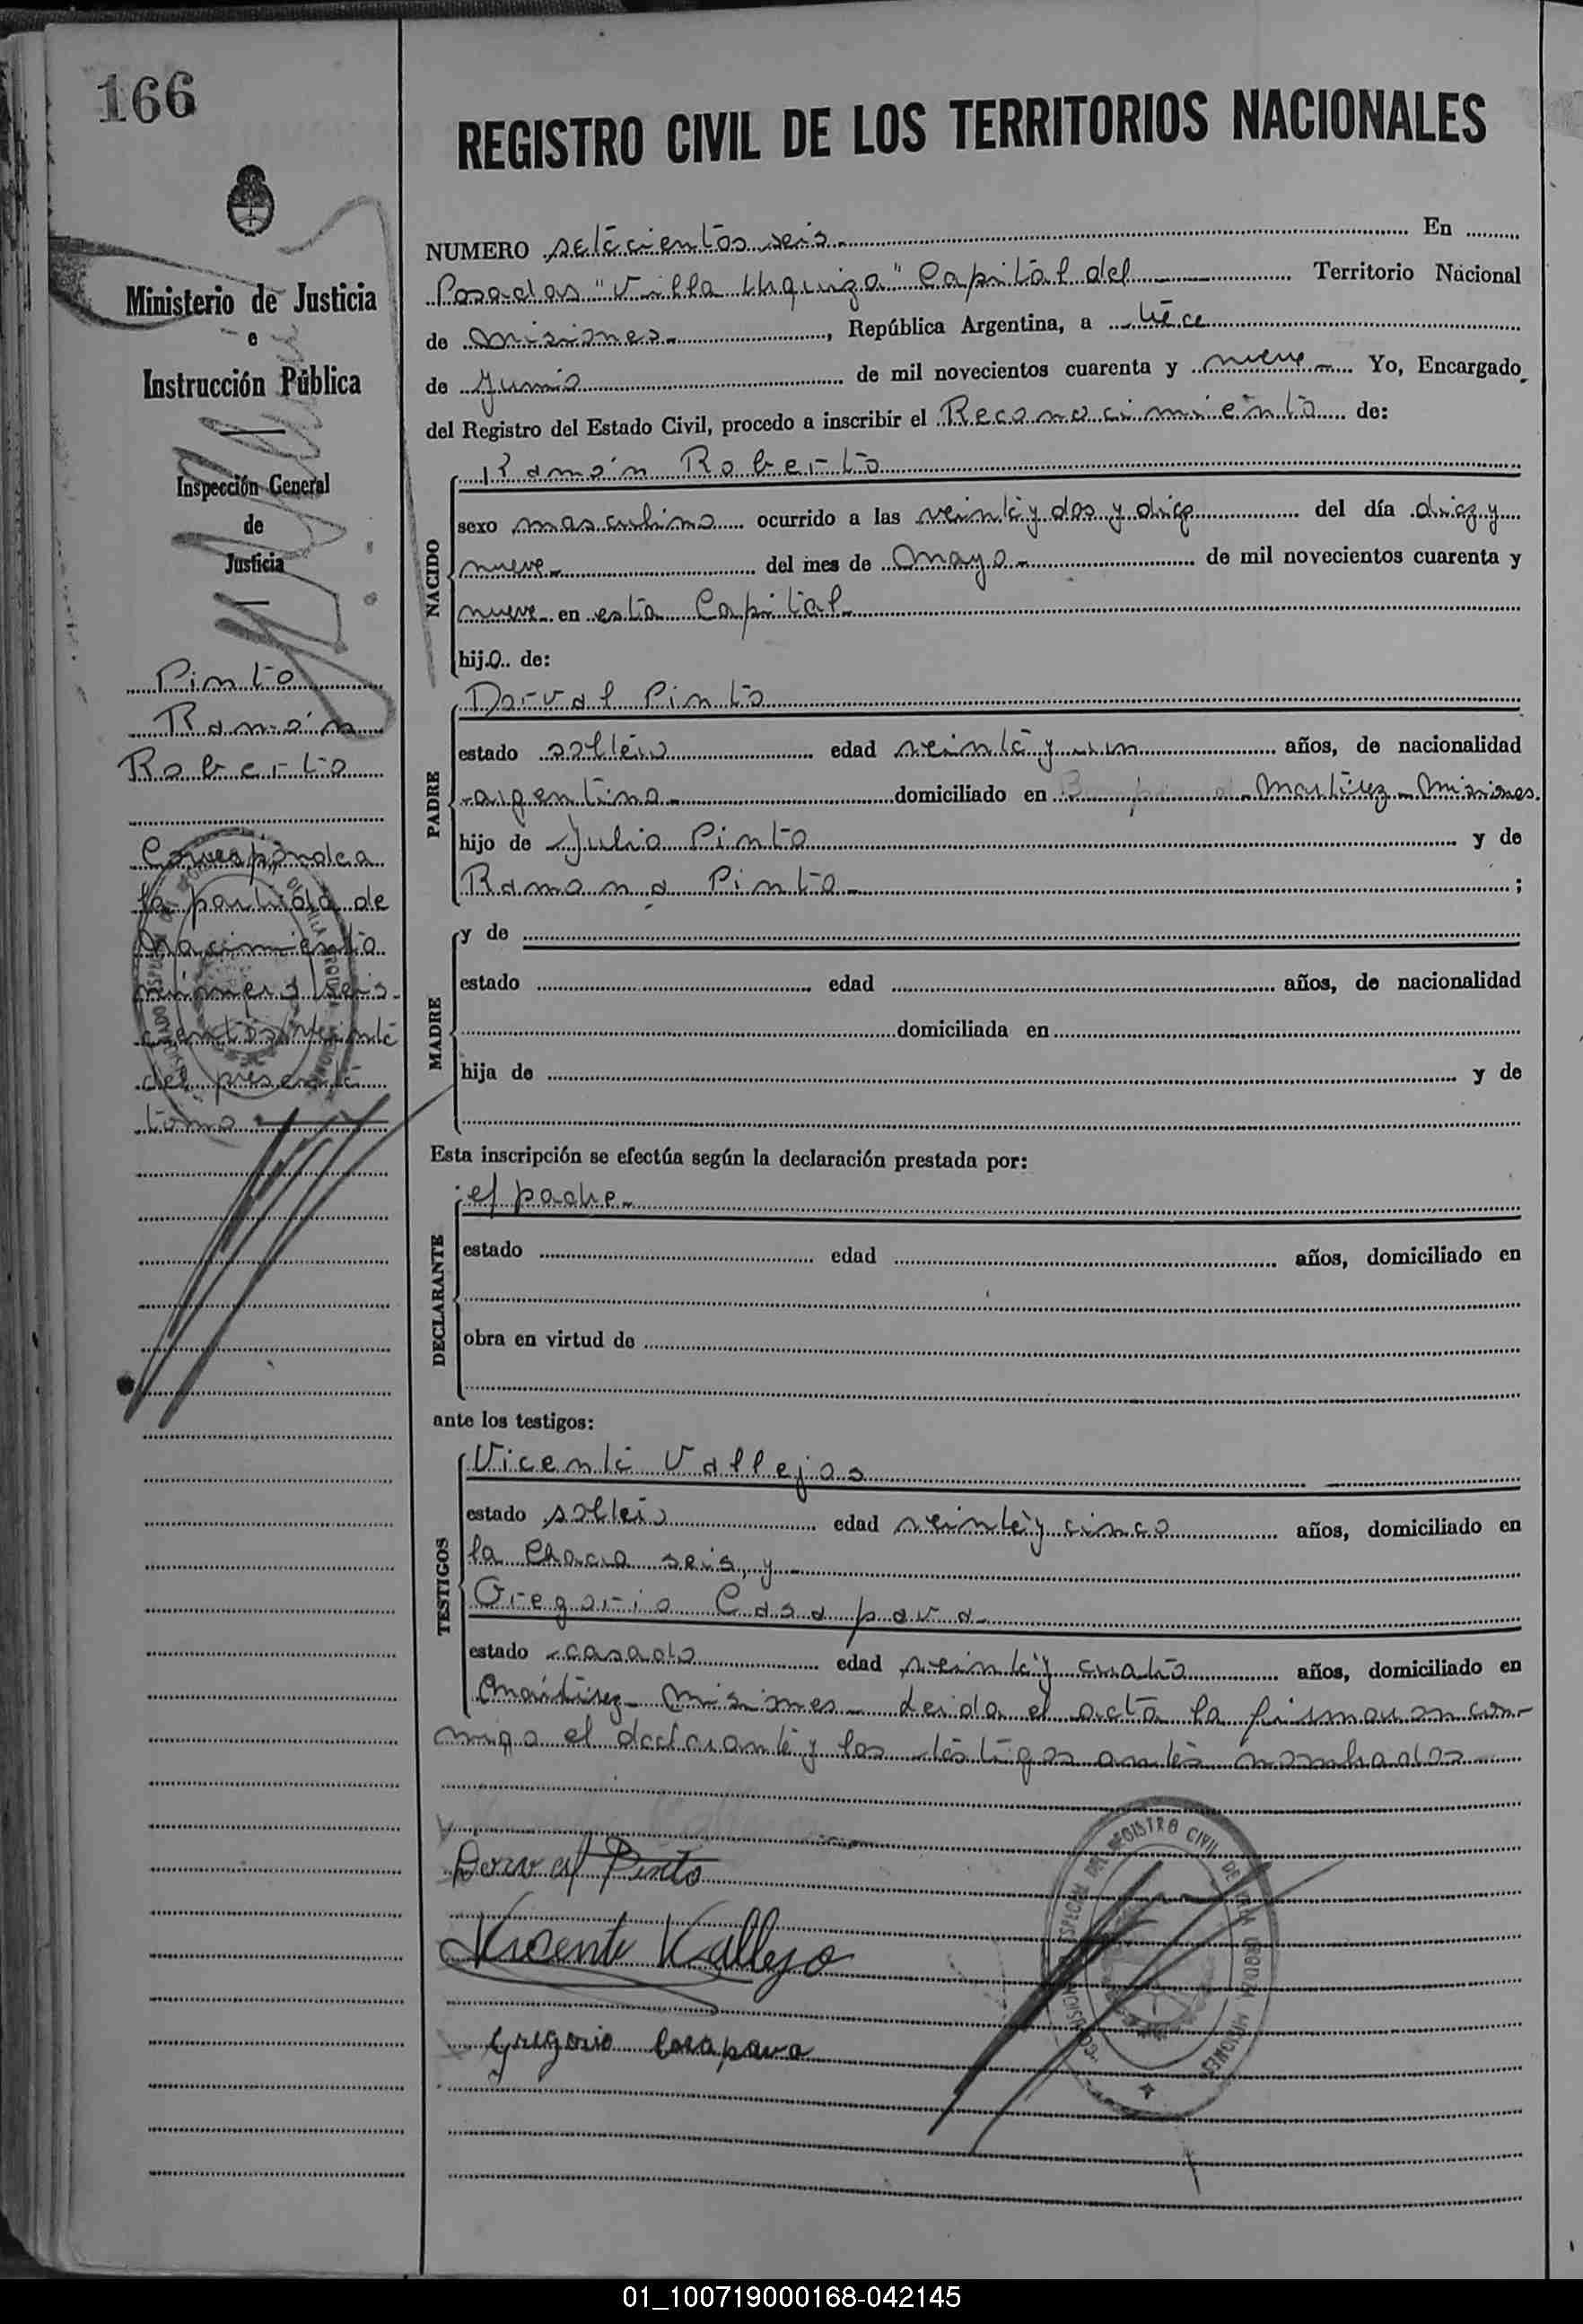 166
REGISTRO CIVIL DE LOS TERRITORIOS NACIONALES
Ministerio de Justicia
e
Instrucción Pública
Inspección General
de
Justicia
Pinto
Ramón
Roberto
Corresponde a
la partida de
Nacimiento
número seis-
cientos veinte
del presente
tomo
NUMERO setecientos seis En
Posadas "Villa Urquiza" Capital del Territorio Nacional
de Misiones, República Argentina, a trece
de Junio de mil novecientos cuarenta y nueve Yo, Encargado
del Registro del Estado Civil, procedo a inscribir el Reconocimiento de:
NACIDO
Ramón Roberto
sexo masculino ocurrido a las veinte y dos y diez del día diez y
nueve del mes de Mayo de mil novecientos cuarenta y
nueve en esta Capital
hijo de:
PADRE
Dorval Pinto
estado soltero edad veinte y un años, de nacionalidad
argentino domiciliado en Martirez - Misiones.
hijo de Julio Pinto y de
Ramona Pinto ;
MADRE
y de
estado edad años, de nacionalidad
domiciliada en
hija de y de
Esta inscripción se efectúa según la declaración prestada por:
DECLARANTE
el padre
estado edad años, domiciliado en
obra en virtud de
ante los testigos:
TESTIGOS
Vicente Vallejos
estado soltero edad veinte y cinco años, domiciliado en
la Chacra seis, y
Gregorio Casapava
estado casado edad veinte y cuatro años, domiciliado en
Martirez - Misiones - Leida el acta la firmaron con-
migo el declarante y los testigos antes nombrados
Dorval Pinto
Vicente Vallejo
Gregorio Casapava
REGISTRO CIVIL DE VILLA URQUIZA MISIONES
01_100719000168-042145